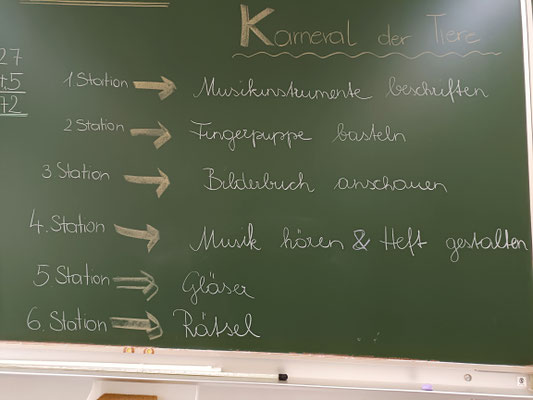 Karneval der Tiere
27
+5
72
1. Station → Musikinstrumente beschriften
2 Station → Fingerpuppe basteln
3. Station → Bilderbuch anschauen
4. Station → Musik hören & Heft gestalten
5 Station → Gläser
6. Station → Rätsel